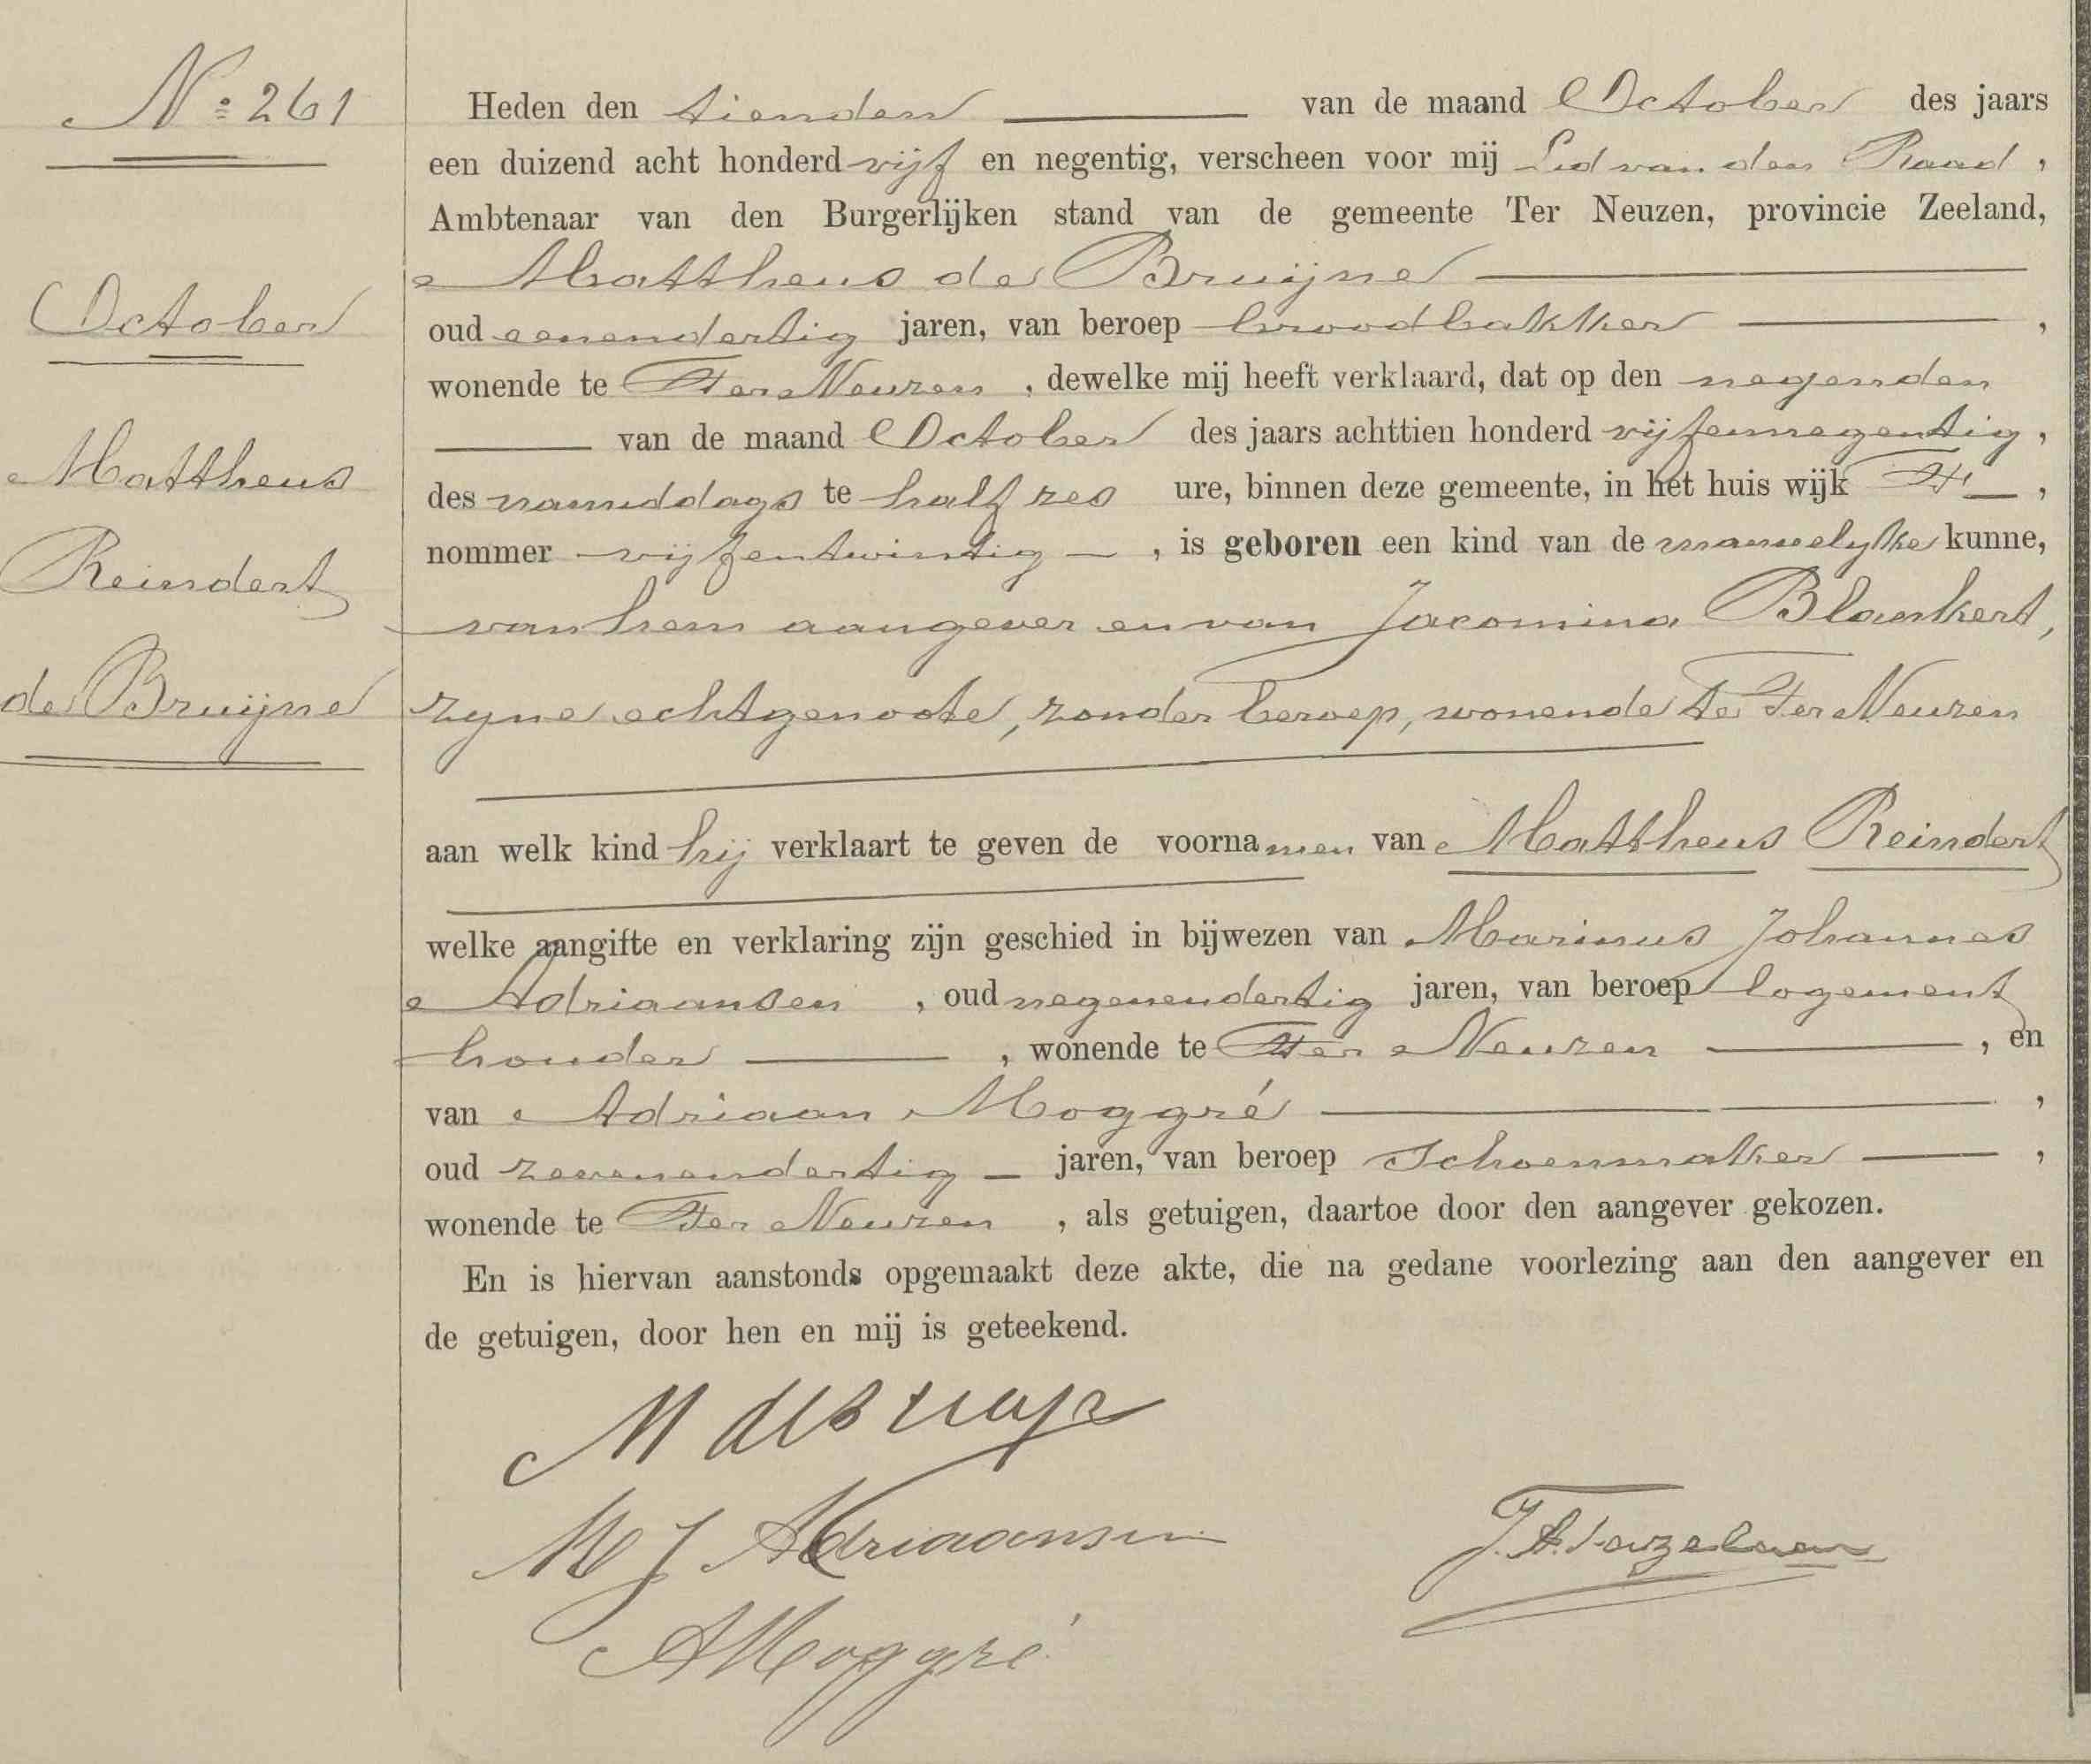 No 261
October
Mattheus
Reindert
de Bruijne
Heden den tienden van de maand October des jaars
een duizend acht honderd vijf en negentig, verscheen voor mij Lid van den Raad,
Ambtenaar van den Burgerlijken stand van de gemeente Ter Neuzen, provincie Zeeland,
Mattheus de Bruijne
oud eenendertig jaren, van beroep broodbakker,
wonende te Ter Neuzen, dewelke mij heeft verklaard, dat op den negenden
van de maand October des jaars achttien honderd vijfennegentig,
des namiddags te half zes ure, binnen deze gemeente, in het huis wijk,
nommer vijfentwintig, is geboren een kind van de mannelyke kunne,
van hem aangever en van Jacomina Blankert,
zyne echtgenoote, zonder beroep, wonende te Ter Neuzen
aan welk kind hij verklaart te geven de voornamen van Mattheus Reindert
welke aangifte en verklaring zijn geschied in bijwezen van Marinus Johannes
Adriaansen, oud negenendertig jaren, van beroep logement
houder, wonende te Ter Neuzen, en
van Adriaan Moggré,
oud zevenendertig jaren, van beroep Schoenmaker,
wonende te Ter Neuzen, als getuigen, daartoe door den aangever gekozen.
En is hiervan aanstonds opgemaakt deze akte, die na gedane voorlezing aan den aangever en
de getuigen, door hen en mij is geteekend.
M de Bruijne
M J Adriaansen
A Moggré